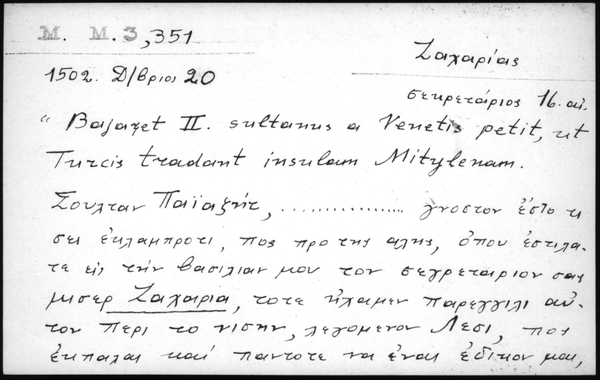 M. M.3,351
Ζαχαρίας
1502. Δ/βριος 20
σεκρετάριος 16. αἰ.
" Bajazet II. sultanus a Venetis petit, ut
Turcis tradant insulam Mitylenam.
Σουλταν Παϊαζήτ, ................ γνοστον ἔστο τι
σει ἐκλαμπροτι, πος προ της αλης, ὁπου ἐστιλα-
τε εἰς τήν βασιλιαν μου τον σεγρεταριον σας
μισερ Ζαχαρια, τοτε ἠχαμεν παρεγγιλι αὐ-
τον περι το νισην, λεγομενον Λεσι, πος
ἐκπαλαι καί παντοτε να ἐναι ἐδικον μας,